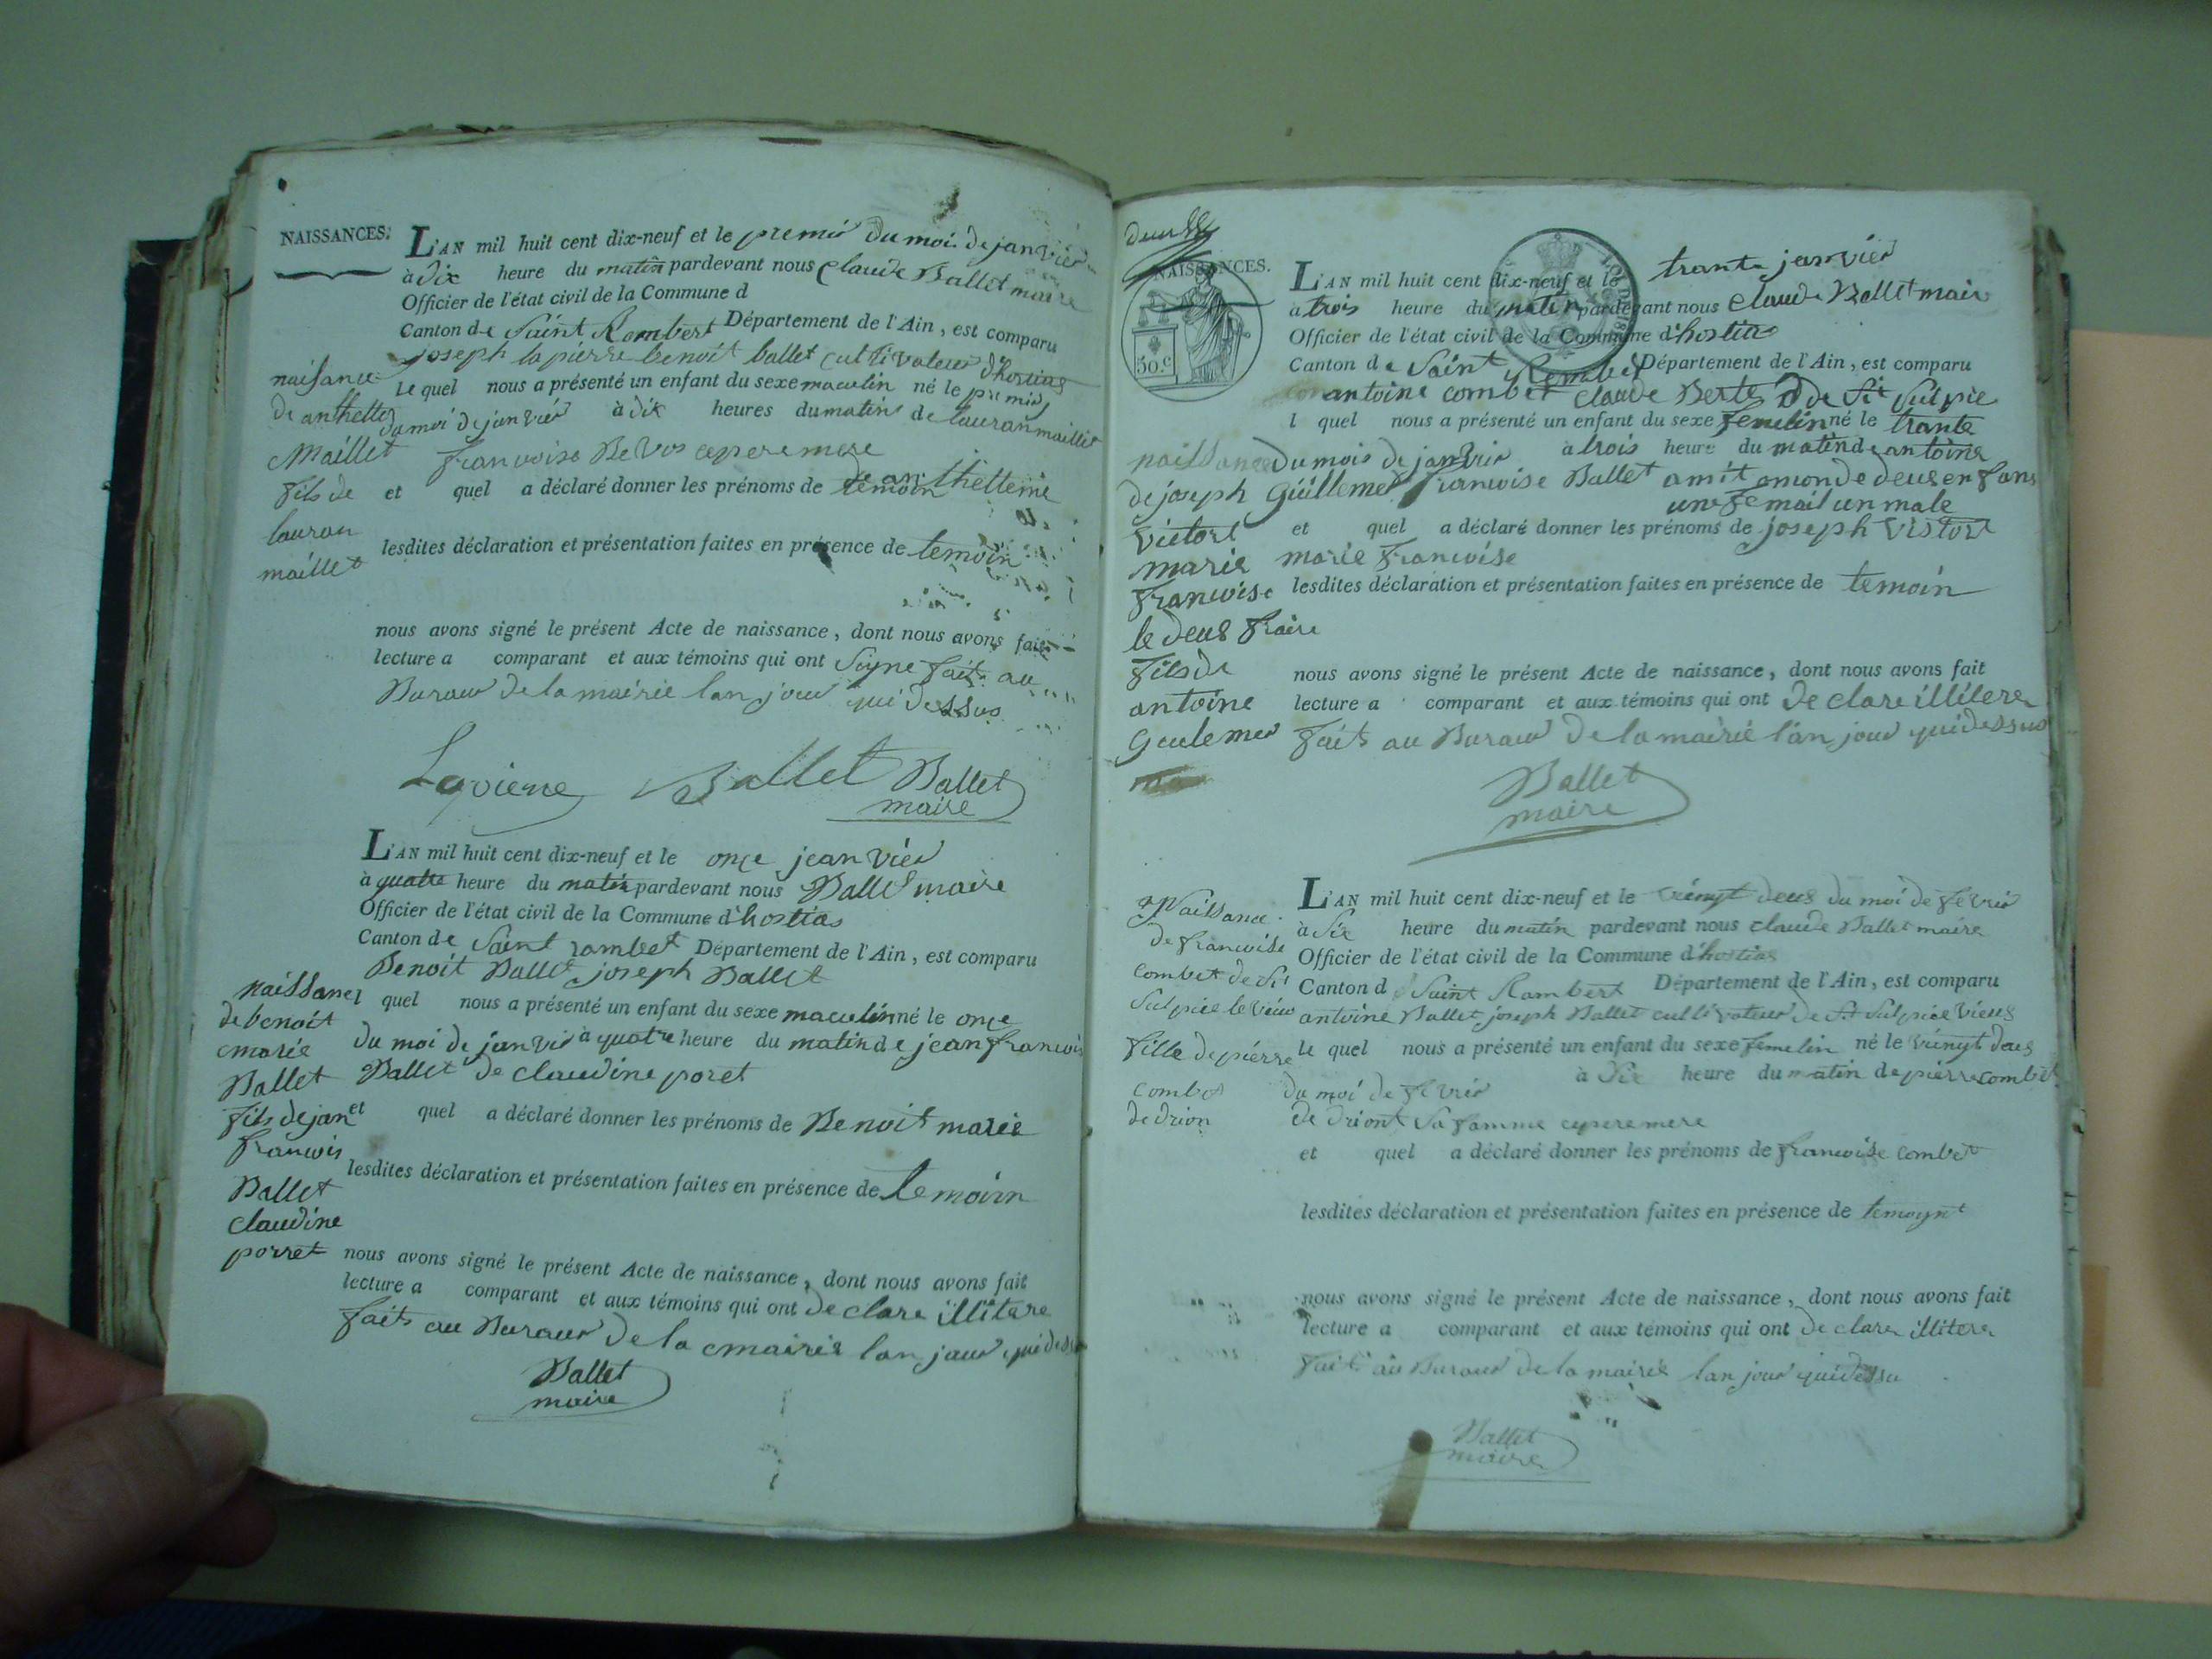 NAISSANCES.
L'AN mil huit cent dix-neuf et le premié du moi de janvier
à dix heure du matin pardevant nous Claude Ballet maire
Officier de l'état civil de la Commune d
Canton de Saint Rombert Département de l'Ain, est comparu
joseph lapierre benoit ballet cultivateur d'hostias
Le quel nous a présenté un enfant du sexe maculin né le premié
du moi de janvié à dix heures du matin de lauran maillet
francoise Devos cepere mere
et quel a déclaré donner les prénoms de de anthelleme
temoin
lesdites déclaration et présentation faites en présence de temoin
nous avons signé le présent Acte de naissance, dont nous avons fait
lecture a comparant et aux témoins qui ont Signe fait au
Buraur de la mairie lan jour qui dessus
naisance
de anthelle
Maillet
fils de
lauran
maillet
Lapierre Ballet Ballet
maire
L'AN mil huit cent dix-neuf et le onçe jeanvier
à quatre heure du matin pardevant nous Ballet maire
Officier de l'état civil de la Commune d'hostias
Canton de Saint rambet Département de l'Ain, est comparu
Benoit Ballet joseph Ballet
l quel nous a présenté un enfant du sexe maculin né le onçe
du moi de janvié à quatre heure du matin de jean francois
Ballet de claudine poret
et quel a déclaré donner les prénoms de Benoit marie
lesdites déclaration et présentation faites en présence de temoin
nous avons signé le présent Acte de naissance, dont nous avons fait
lecture a comparant et aux témoins qui ont de clare illitere
fait au Buraur de la mairie lan jour qui dessu
naissance
de benoit
marie
Ballet
fils de jan
francois
Ballet
claudine
porret
Ballet
maire
deux
NAISSANCES.
50.c
L'AN mil huit cent dix-neuf et le trante janvier
à trois heure du matin pardevant nous Claude Ballet maire
Officier de l'état civil de la Commune d'hostias
Canton de Saint Rembet Département de l'Ain, est comparu
antoine combet claude Berte de St Sulpie
l quel nous a présenté un enfant du sexe femelin né le trante
du mois de janvier à trois heure du matin de antoine
Guillemet francoise Ballet a mit omonde deus enfans
une femail un male
et quel a déclaré donner les prénoms de joseph victort
marie francoise
lesdites déclaration et présentation faites en présence de temoin
nous avons signé le présent Acte de naissance, dont nous avons fait
lecture a comparant et aux témoins qui ont de clare illitere
fait au Buraur de la mairie l'an jour qui dessus
naissance
de joseph
victort
marie
francoise
le deus fraire
fils de
antoine
Guleme
Ballet
maire
L'AN mil huit cent dix-neuf et le vingt deus du moi de fevrié
à six heure du matin pardevant nous claude Ballet maire
Officier de l'état civil de la Commune d'hostias
Canton d Saint Rambert Département de l'Ain, est comparu
antoine Ballet joseph Ballet cultivateur de St Sulpice vieus
le quel nous a présenté un enfant du sexe femelin né le vingt deus
du moi de fevrié à six heure du matin de pierre combet
de driont sa famme cepere mere
et quel a déclaré donner les prénoms de francoise combet
lesdites déclaration et présentation faites en présence de temoynt
nous avons signé le présent Acte de naissance, dont nous avons fait
lecture a comparant et aux témoins qui ont de clare illitere
fait au Buraur de la mairie lan jour qui dessu
Naissance
de francoise
combet de St
Sulpice le vieu
fille de pierre
combet
de drion
Ballet
maire